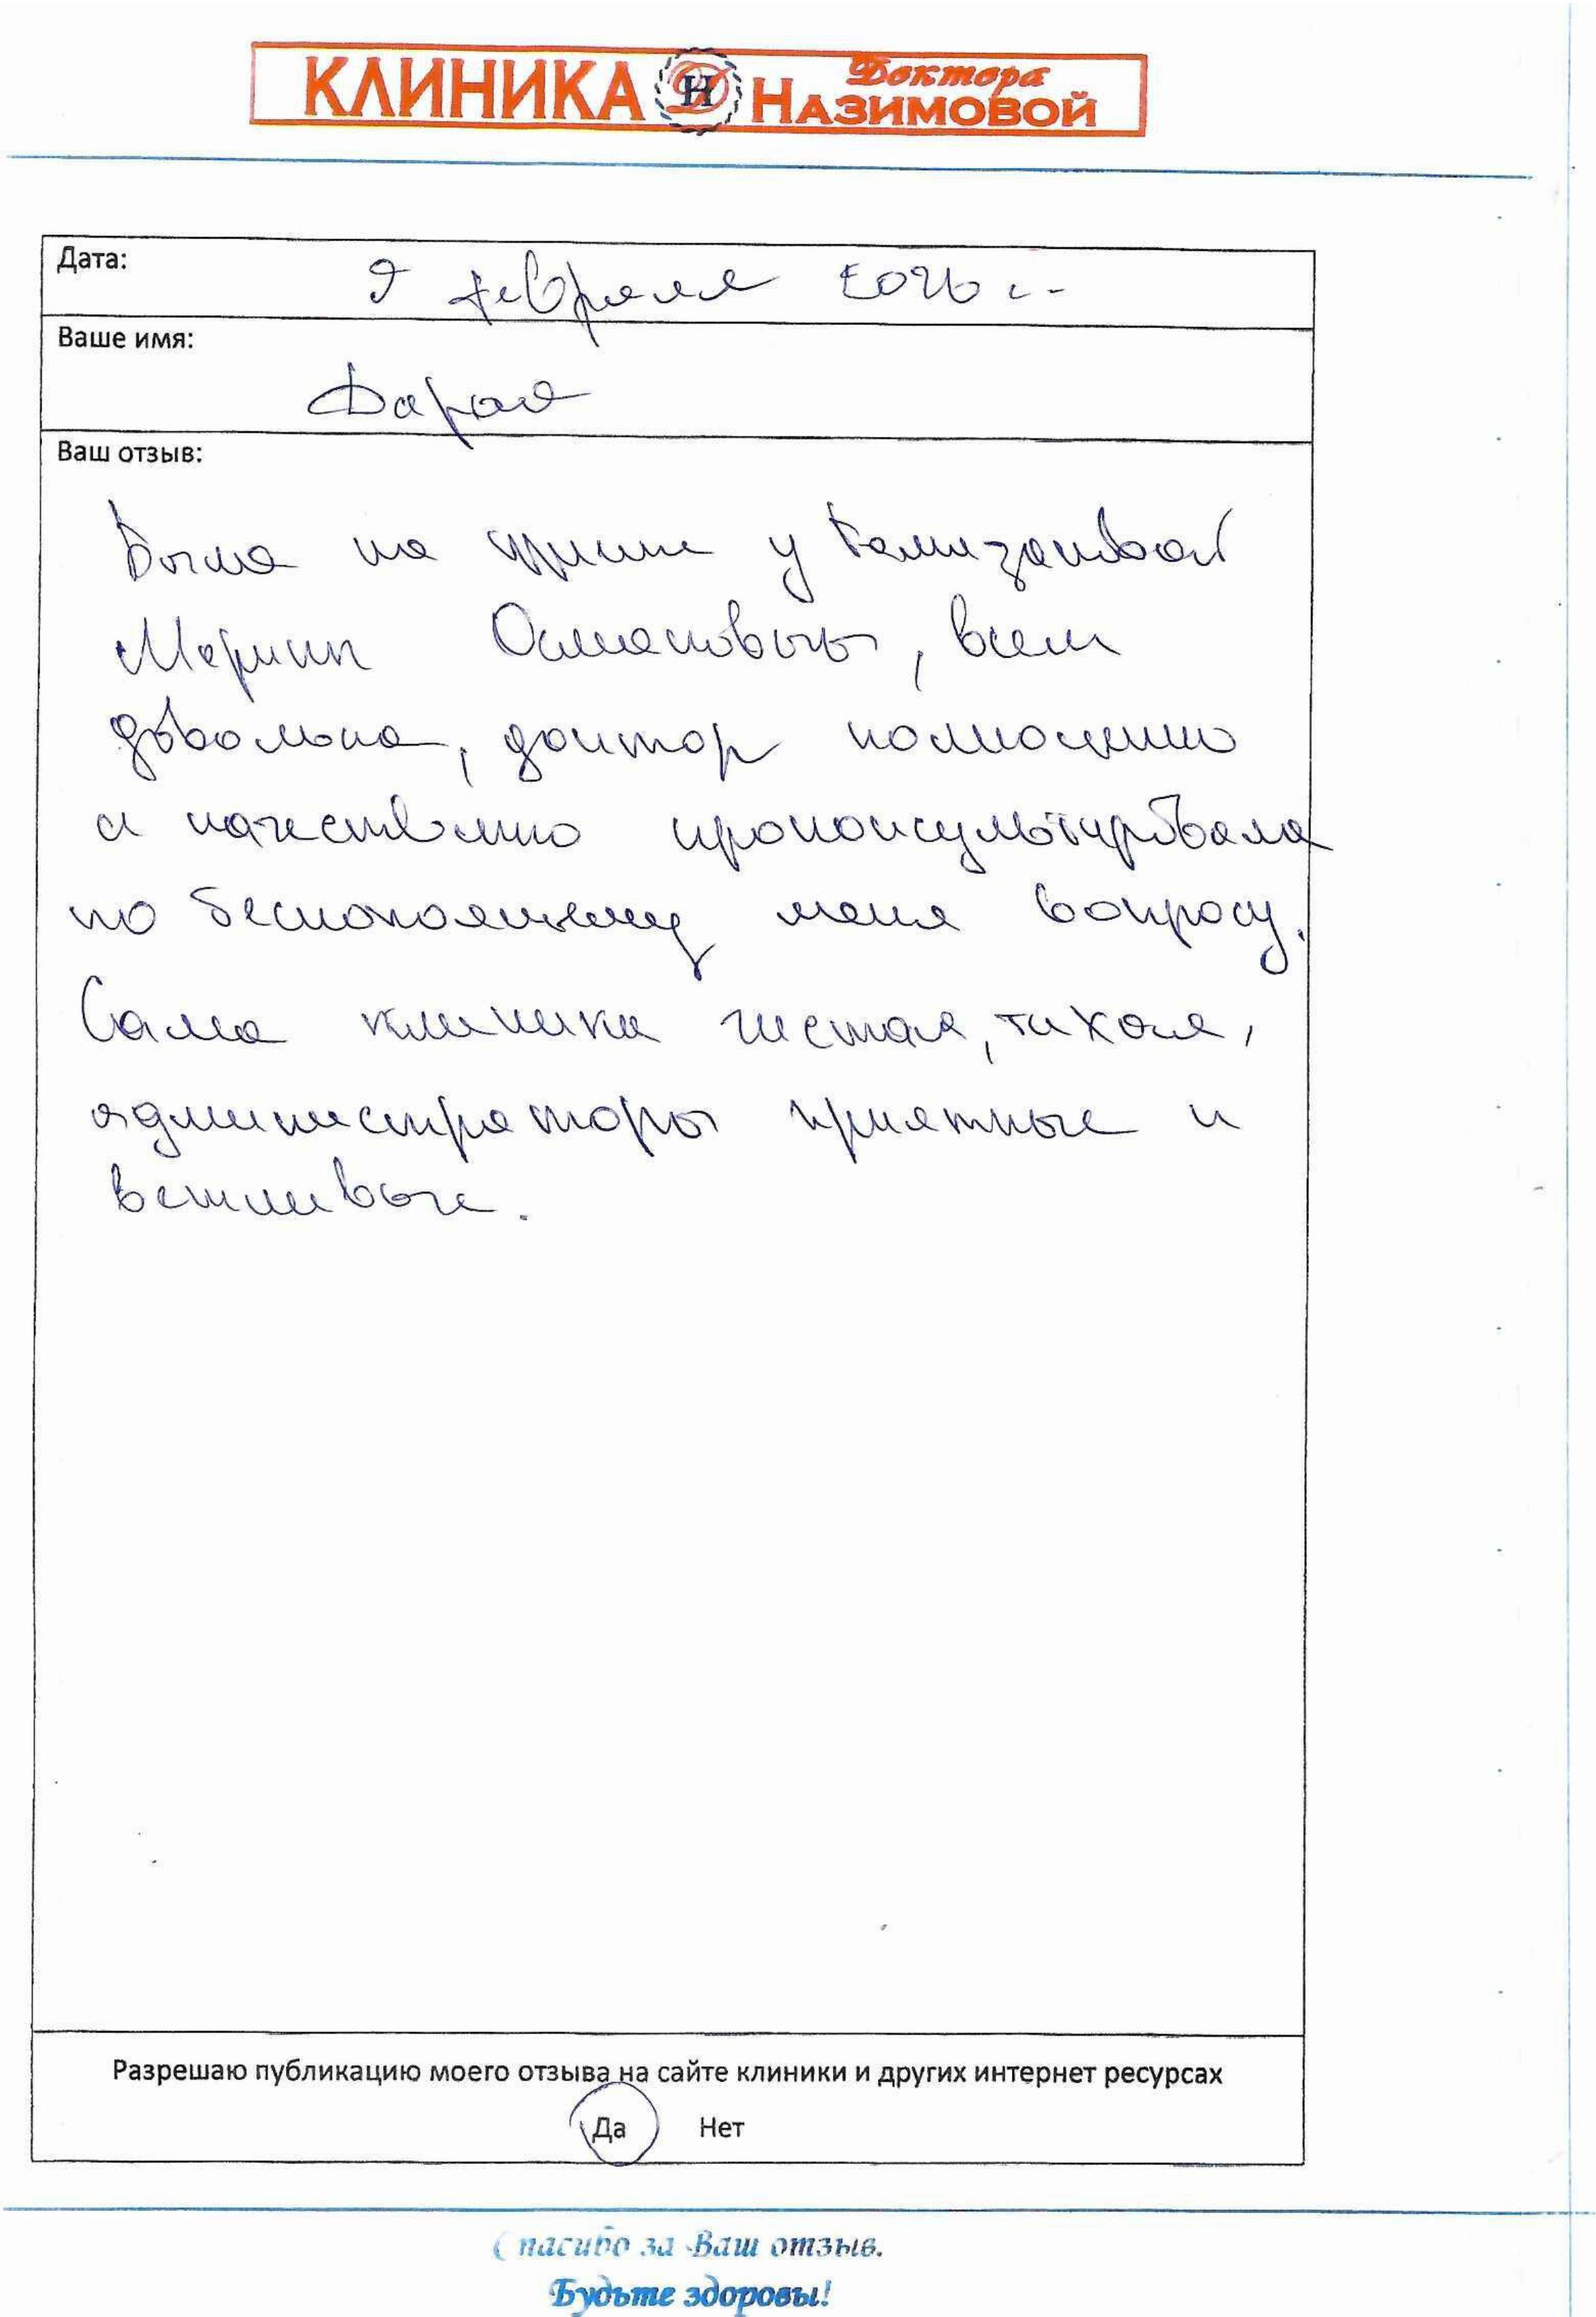 КЛИНИКА ДН Доктора НАЗИМОВОЙ
Дата: 9 февраля 2026 г.
Ваше имя:
Дарья
Ваш отзыв:
Была на приёме у
Марины Османовны, всем
довольна, доктор полноценно
и качественно проконсультировала
по беспокоящему меня вопросу.
Сама клиника чистая, тихая,
администраторы приятные и
вежливые.
Разрешаю публикацию моего отзыва на сайте клиники и других интернет ресурсах
Да Нет
Спасибо за Ваш отзыв.
Будьте здоровы!